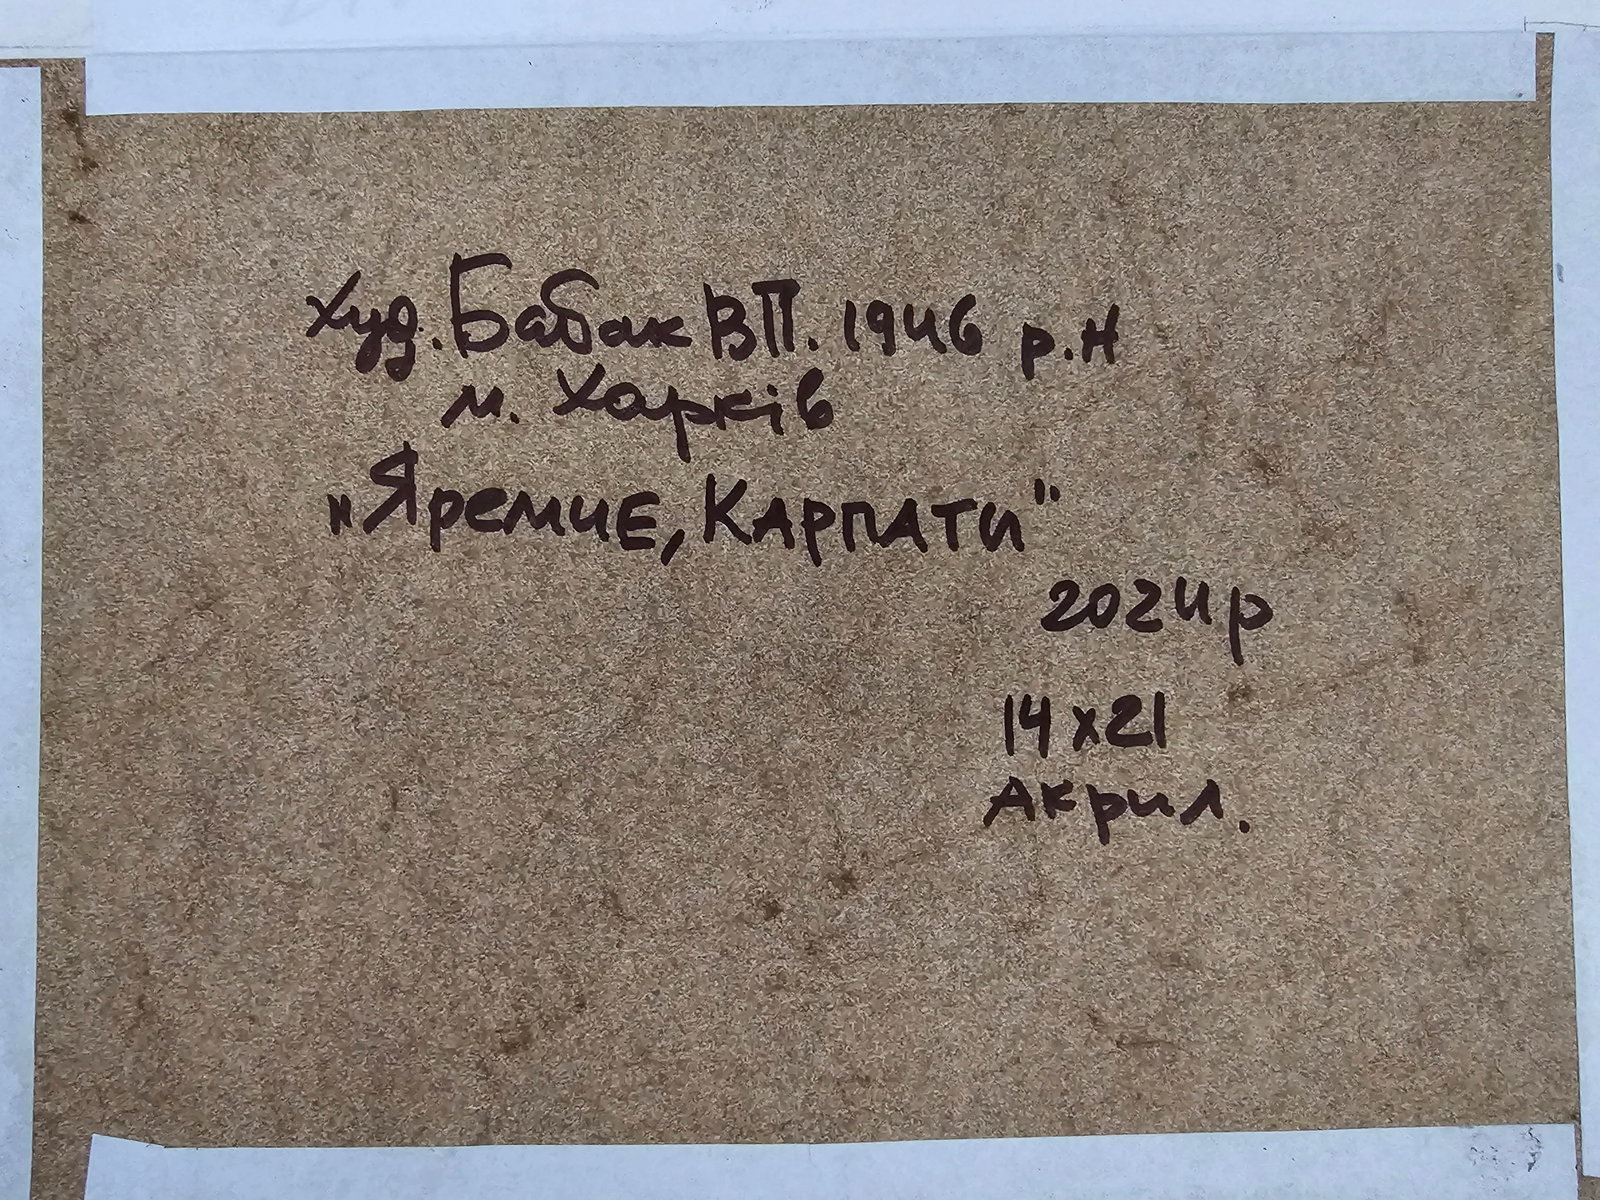 Худ. Бабак В П. 1946 р.н
м. Харків
„Яремче, Карпати"
2024р
14х21
Акрил.